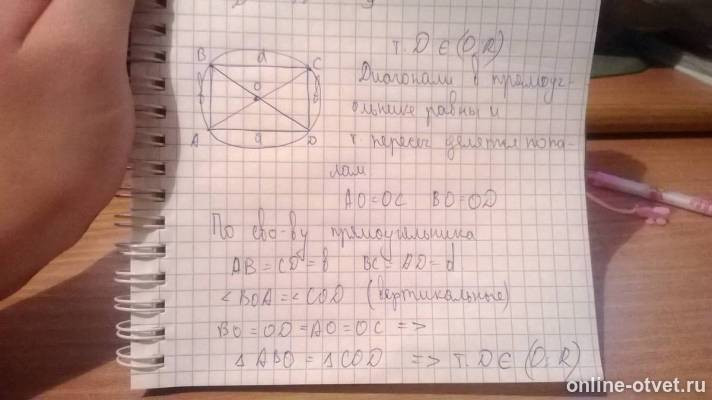 B d C
O
b b
A a D
т. D ∈ (O; R)
Диагонали в прямоуг-
ольнике равны и
т. пересеч делятся попо-
лам
AO = OC BO = OD
По сво-ву прямоугольника
AB = CD = b BC = AD = d
<BOA = <COD (вертикальные)
BO = OD = AO = OC =>
△ ABO = △ COD => т. D ∈ (O; R)
online-otvet.ru